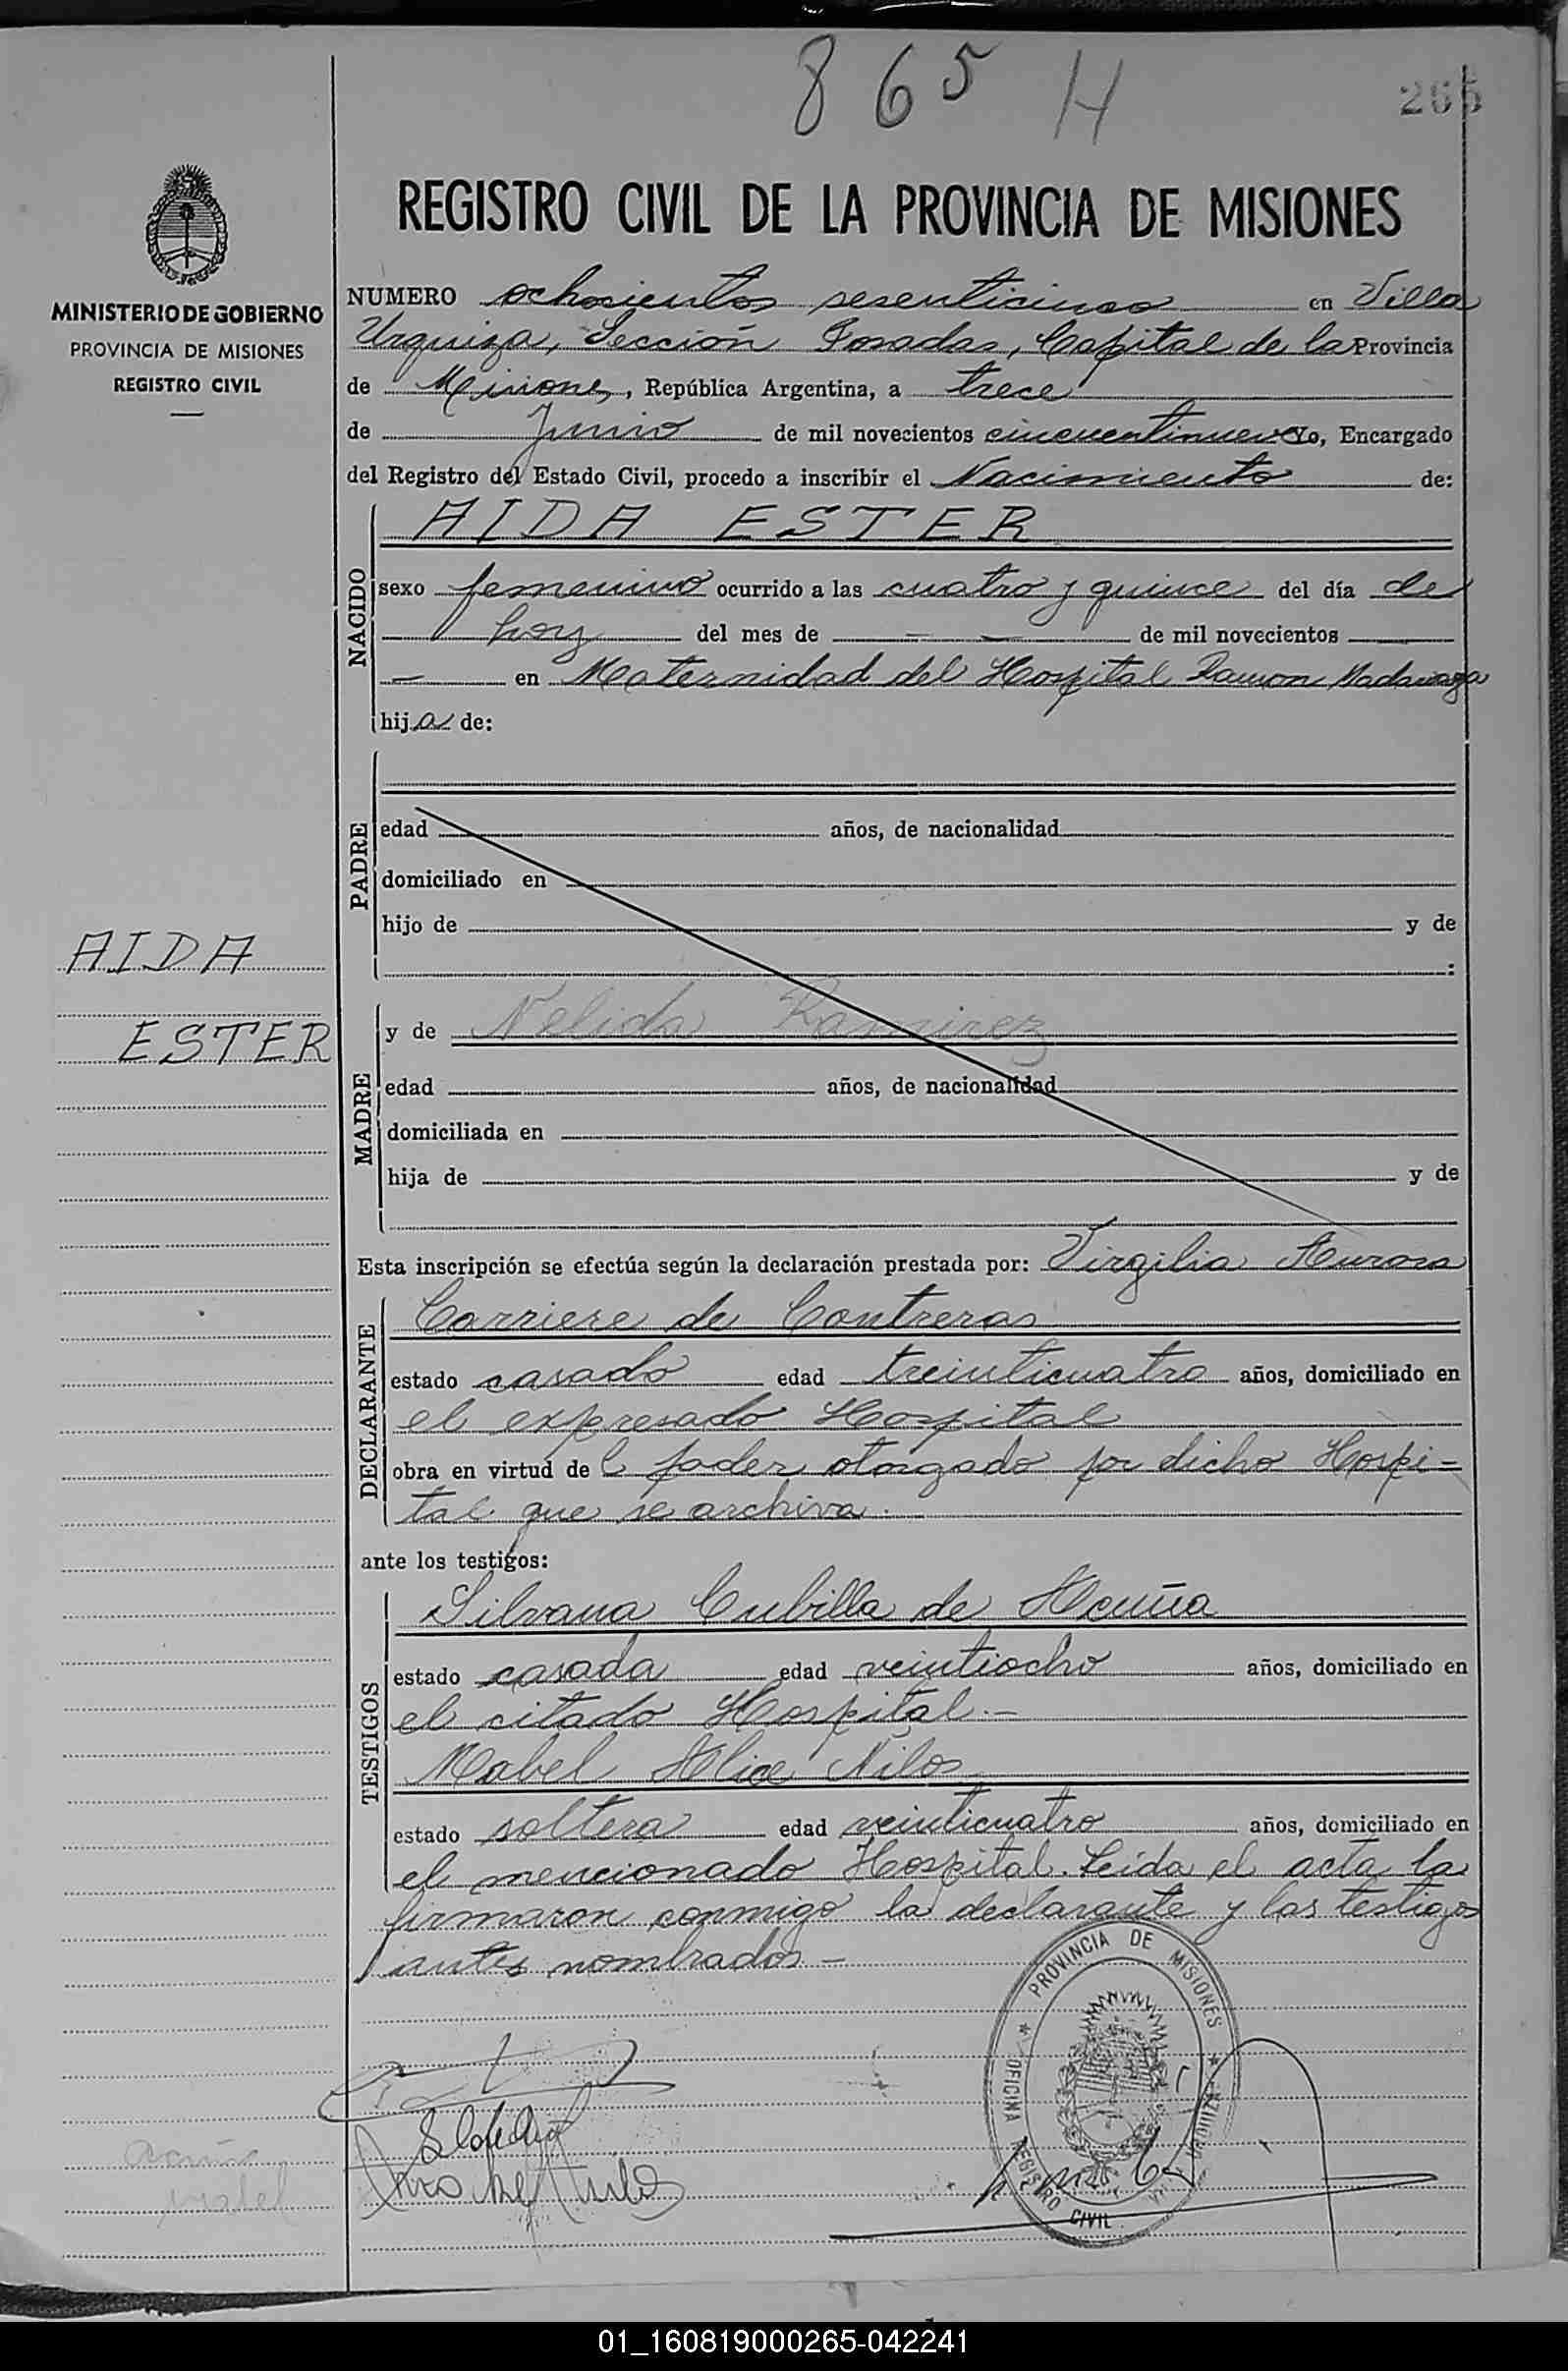 865 H
265
MINISTERIO DE GOBIERNO
PROVINCIA DE MISIONES
REGISTRO CIVIL
REGISTRO CIVIL DE LA PROVINCIA DE MISIONES
NUMERO ochosientos sesenticinco en Villa
Urquiza, Sección Posadas, Capital de la Provincia
de Misiones, República Argentina, a trece
de Junio de mil novecientos cincuentinueve Yo, Encargado
del Registro del Estado Civil, procedo a inscribir el Nacimiento de:
NACIDO
AIDA ESTER
sexo femenino ocurrido a las cuatro y quince del día de
hoy del mes de — — de mil novecientos —
— en Maternidad del Hospital Ramon Madariaga
hija de:
PADRE
edad años, de nacionalidad
domiciliado en
hijo de y de
:
AIDA
ESTER
MADRE
y de Nelida Ramirez
edad años, de nacionalidad
domiciliada en
hija de y de
Esta inscripción se efectúa según la declaración prestada por: Virgilia Aurora
DECLARANTE
Carriere de Contreras
estado casado edad treinticuatro años, domiciliado en
el expresado Hospital
obra en virtud del poder otorgado por dicho Hospi-
tal que se archiva.
ante los testigos:
TESTIGOS
Silvana Cubilla de Acuña
estado casada edad veintiocho años, domiciliado en
el citado Hospital.-
Mabel Alice Nilos
estado soltera edad veinticuatro años, domiciliado en
el mencionado Hospital. Leida el acta la
firmaron conmigo la declarante y los testigos
antes nombrados.-
PROVINCIA DE MISIONES
OFICINA REGISTRO CIVIL
01_160819000265-042241